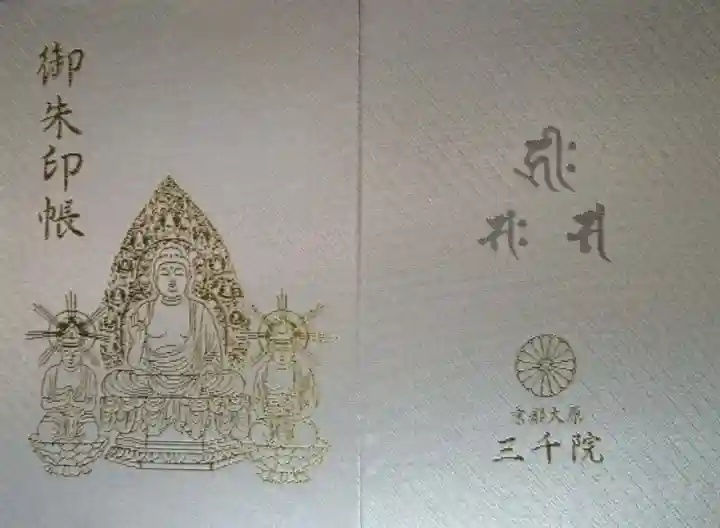 御朱印帳
𑖮𑖿𑖨𑖱𑖾
𑖭𑖾 𑖭
京都大原
三千院